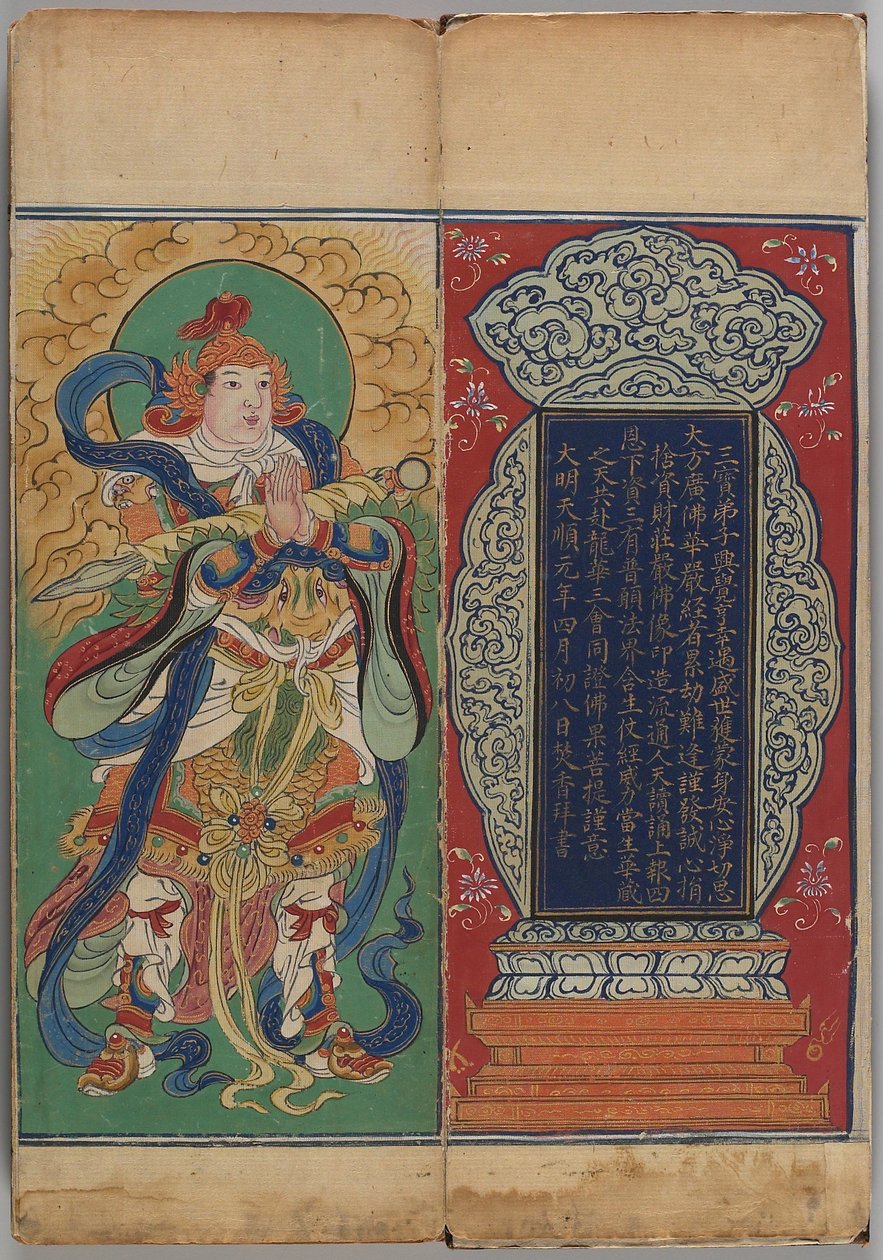 三寶弟子興覺亨幸遇盛世獲蒙身安心淨切思
大方廣佛華嚴經者累劫難逢謹發誠心捐
捨資財莊嚴佛像印造流通人天讀誦上報四
恩下資三有普願法界含生仗經威力當生華藏
之天共赴龍華三會同證佛果菩提謹意
大明天順元年四月初八日焚香拜書